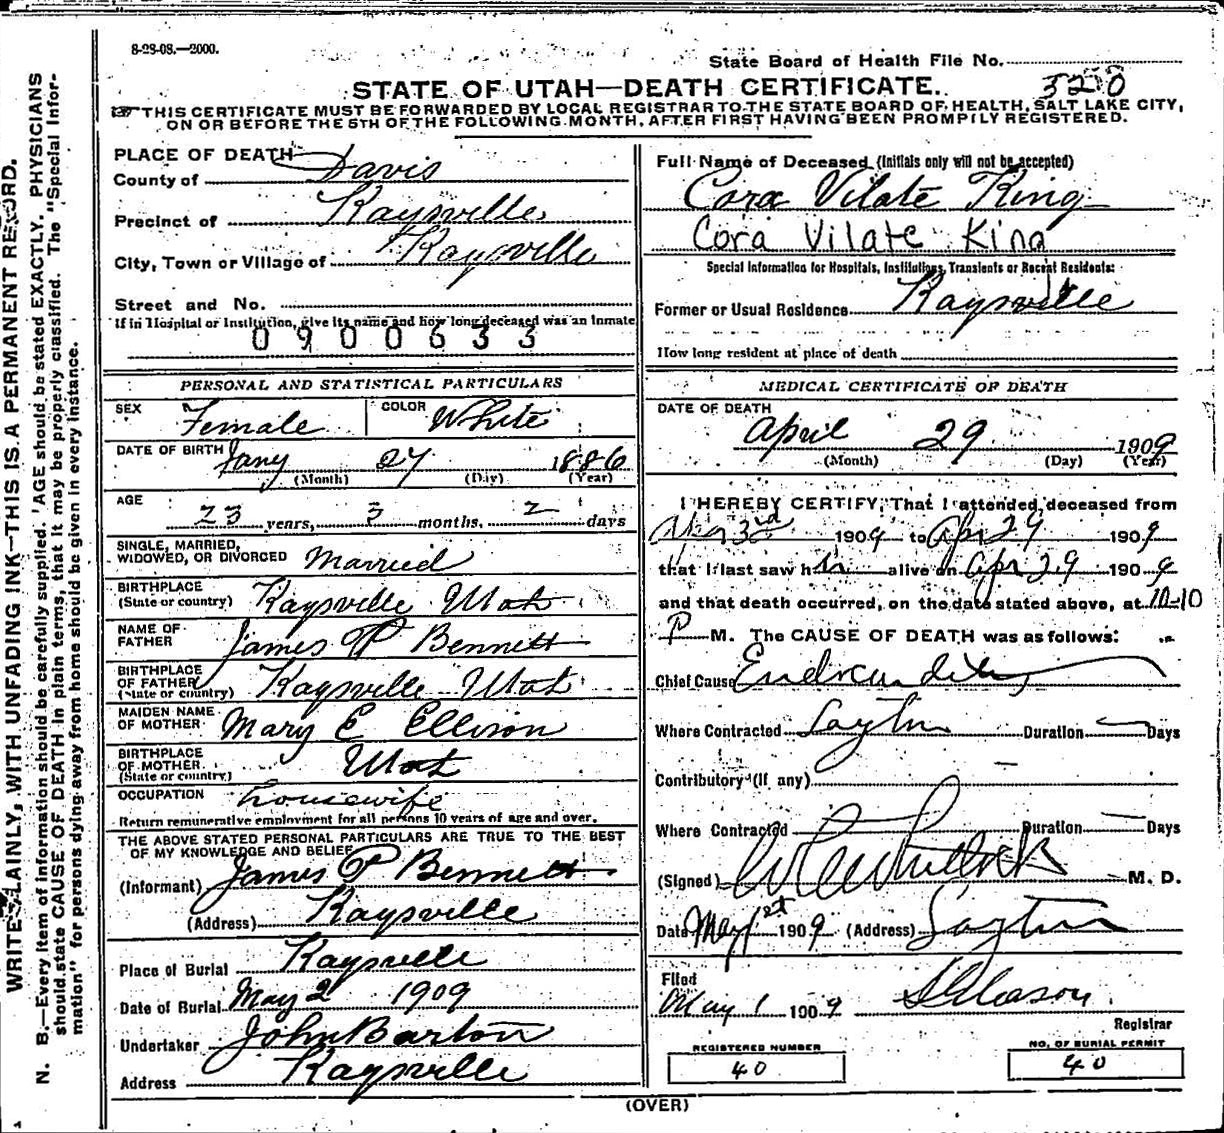 8-28-08.—2000.
State Board of Health File No.
STATE OF UTAH—DEATH CERTIFICATE.
THIS CERTIFICATE MUST BE FORWARDED BY LOCAL REGISTRAR TO THE STATE BOARD OF HEALTH, SALT LAKE CITY,
ON OR BEFORE THE 5TH OF THE FOLLOWING MONTH, AFTER FIRST HAVING BEEN PROMPTLY REGISTERED.
WRITE PLAINLY, WITH UNFADING INK—THIS IS A PERMANENT RECORD.
N. B.—Every item of information should be carefully supplied. AGE should be stated EXACTLY. PHYSICIANS
should state CAUSE OF DEATH in plain terms, that it may be properly classified. The "Special Infor-
mation" for persons dying away from home should be given in every instance.
PLACE OF DEATH
County of Davis
Precinct of Kaysville
City, Town or Village of Kaysville
Street and No.
If in Hospital or Institution, give its name and how long deceased was an inmate
0900633
PERSONAL AND STATISTICAL PARTICULARS
SEX Female COLOR White
DATE OF BIRTH Jany 27 1886
(Month) (Day) (Year)
AGE 23 years, 3 months, 2 days
SINGLE, MARRIED,
WIDOWED, OR DIVORCED Married
BIRTHPLACE
(State or country) Kaysville Utah
NAME OF
FATHER James P Bennett
BIRTHPLACE
OF FATHER
(State or country) Kaysville Utah
MAIDEN NAME
OF MOTHER Mary E Ellison
BIRTHPLACE
OF MOTHER
(State or country) Utah
OCCUPATION housewife
Return remunerative employment for all persons 10 years of age and over.
THE ABOVE STATED PERSONAL PARTICULARS ARE TRUE TO THE BEST
OF MY KNOWLEDGE AND BELIEF
(Informant) James P Bennett
(Address) Kaysville
Place of Burial Kaysville
Date of Burial May 2 1909
Undertaker John Barton
Address Kaysville
Full Name of Deceased (Initials only will not be accepted)
Cora Vilate King
Cora Vilate King
Special Information for Hospitals, Institutions, Transients or Recent Residents:
Former or Usual Residence Kaysville
How long resident at place of death
MEDICAL CERTIFICATE OF DEATH
DATE OF DEATH
April 29 1909
(Month) (Day) (Year)
I HEREBY CERTIFY, That I attended deceased from
3rd 1909 to Apr 29 1909
that I last saw h alive on Apr 29 1909
and that death occurred, on the date stated above, at 10-10
P M. The CAUSE OF DEATH was as follows:
Chief Cause
Where Contracted Layton Duration Days
Contributory (If any)
Where Contracted Duration Days
(Signed) M. D.
Date May 1st 1909 (Address) Layton
Filed
May 1 1909
Registrar
REGISTERED NUMBER
40
NO. OF BURIAL PERMIT
40
(OVER)